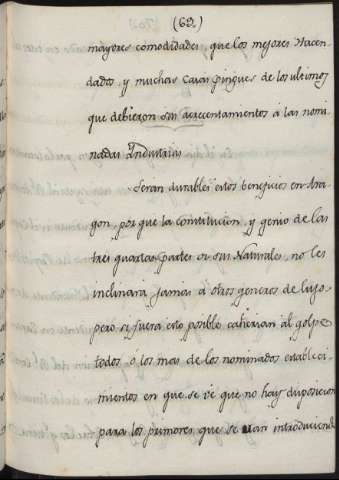 (69.)
mayores comodidades, que los mejores Hacen-
dados, y muchas Casas pingues de los ultimos
que debieron sus acrecentamientos á las nomi-
nadas Yndustrias
Seran durables estos beneficios en Ara-
gon, por que la constitucion, y genio de las
tres quartas partes de sus Naturales, no les
inclinará jamas á otros generos de lujo,
pero si fuera esto posible caherian al golpe
todos, o los mas de los nominados estableci-
mientos en que se vé que no hay disposicion
para los primores que se van introduciendo